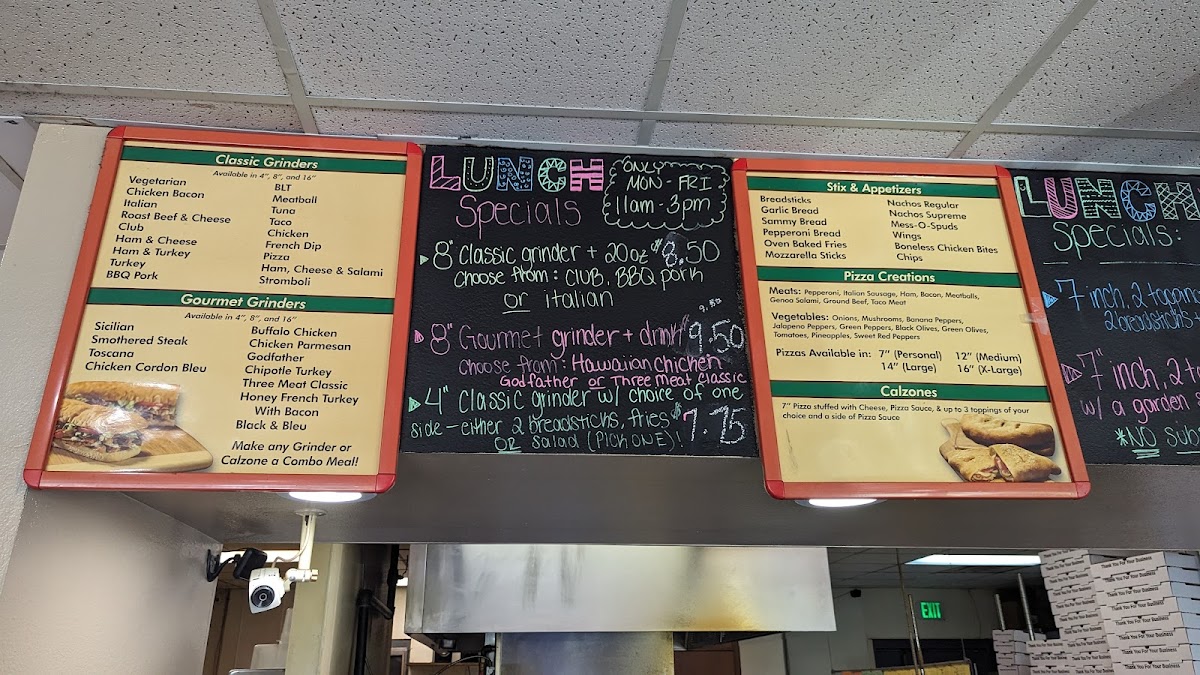 Classic Grinders
Available in 4", 8", and 16"
Vegetarian
Chicken Bacon
Italian
Roast Beef & Cheese
Club
Ham & Cheese
Ham & Turkey
Turkey
BBQ Pork
BLT
Meatball
Tuna
Taco
Chicken
French Dip
Pizza
Ham, Cheese & Salami
Stromboli
Gourmet Grinders
Available in 4", 8", and 16"
Sicilian
Smothered Steak
Toscana
Chicken Cordon Bleu
Buffalo Chicken
Chicken Parmesan
Godfather
Chipotle Turkey
Three Meat Classic
Honey French Turkey
With Bacon
Black & Bleu
Make any Grinder or
Calzone a Combo Meal!
LUNCH
Specials
ONLY
MON - FRI
11am - 3pm
8" Classic grinder + 20oz $8.50
choose from: Club, BBQ pork
or italian
9.50
8" Gourmet grinder + drink $9.50
choose from: Hawaiian chicken
Godfather or Three meat classic
4" Classic grinder w/ choice of one
side - either 2 breadsticks, fries $7.75
OR salad (Pick ONE)!
Stix & Appetizers
Breadsticks
Garlic Bread
Sammy Bread
Pepperoni Bread
Oven Baked Fries
Mozzarella Sticks
Nachos Regular
Nachos Supreme
Mess-O-Spuds
Wings
Boneless Chicken Bites
Chips
Pizza Creations
Meats: Pepperoni, Italian Sausage, Ham, Bacon, Meatballs,
Genoa Salami, Ground Beef, Taco Meat
Vegetables: Onions, Mushrooms, Banana Peppers,
Jalapeno Peppers, Green Peppers, Black Olives, Green Olives,
Tomatoes, Pineapples, Sweet Red Peppers
Pizzas Available in: 7" (Personal) 12" (Medium)
14" (Large) 16" (X-Large)
Calzones
7" Pizza stuffed with Cheese, Pizza Sauce, & up to 3 toppings of your
choice and a side of Pizza Sauce
LUNCH
Specials:
7 inch, 2 topping
2 breadsticks
7" inch, 2 to
w/ a garden s
*NO Subs
EXIT
Thank You For Your Business
Thank You For Your Business
Thank You For Your Business
Thank You For Your Business